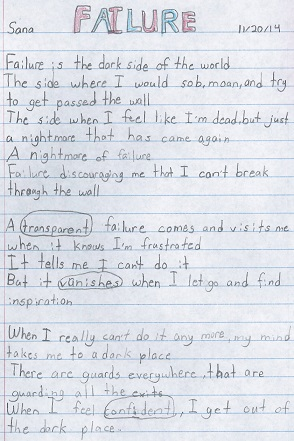 Sana FAILURE 11/20/14
Failure is the dark side of the world
The side where I would sob, moan, and try
to get passed the wall
The side when I feel like I'm dead, but just
a nightmare that has came again
A nightmare of failure
Failure discouraging me that I can't break
through the wall
A transparent failure comes and visits me
when it knows I'm frustrated
It tells me I can't do it
But it vanishes when I let go and find
inspiration
When I really can't do it any more, my mind
takes me to a dark place
There are guards everywhere, that are
guarding all the exits
When I feel confident, I get out of
the dark place.